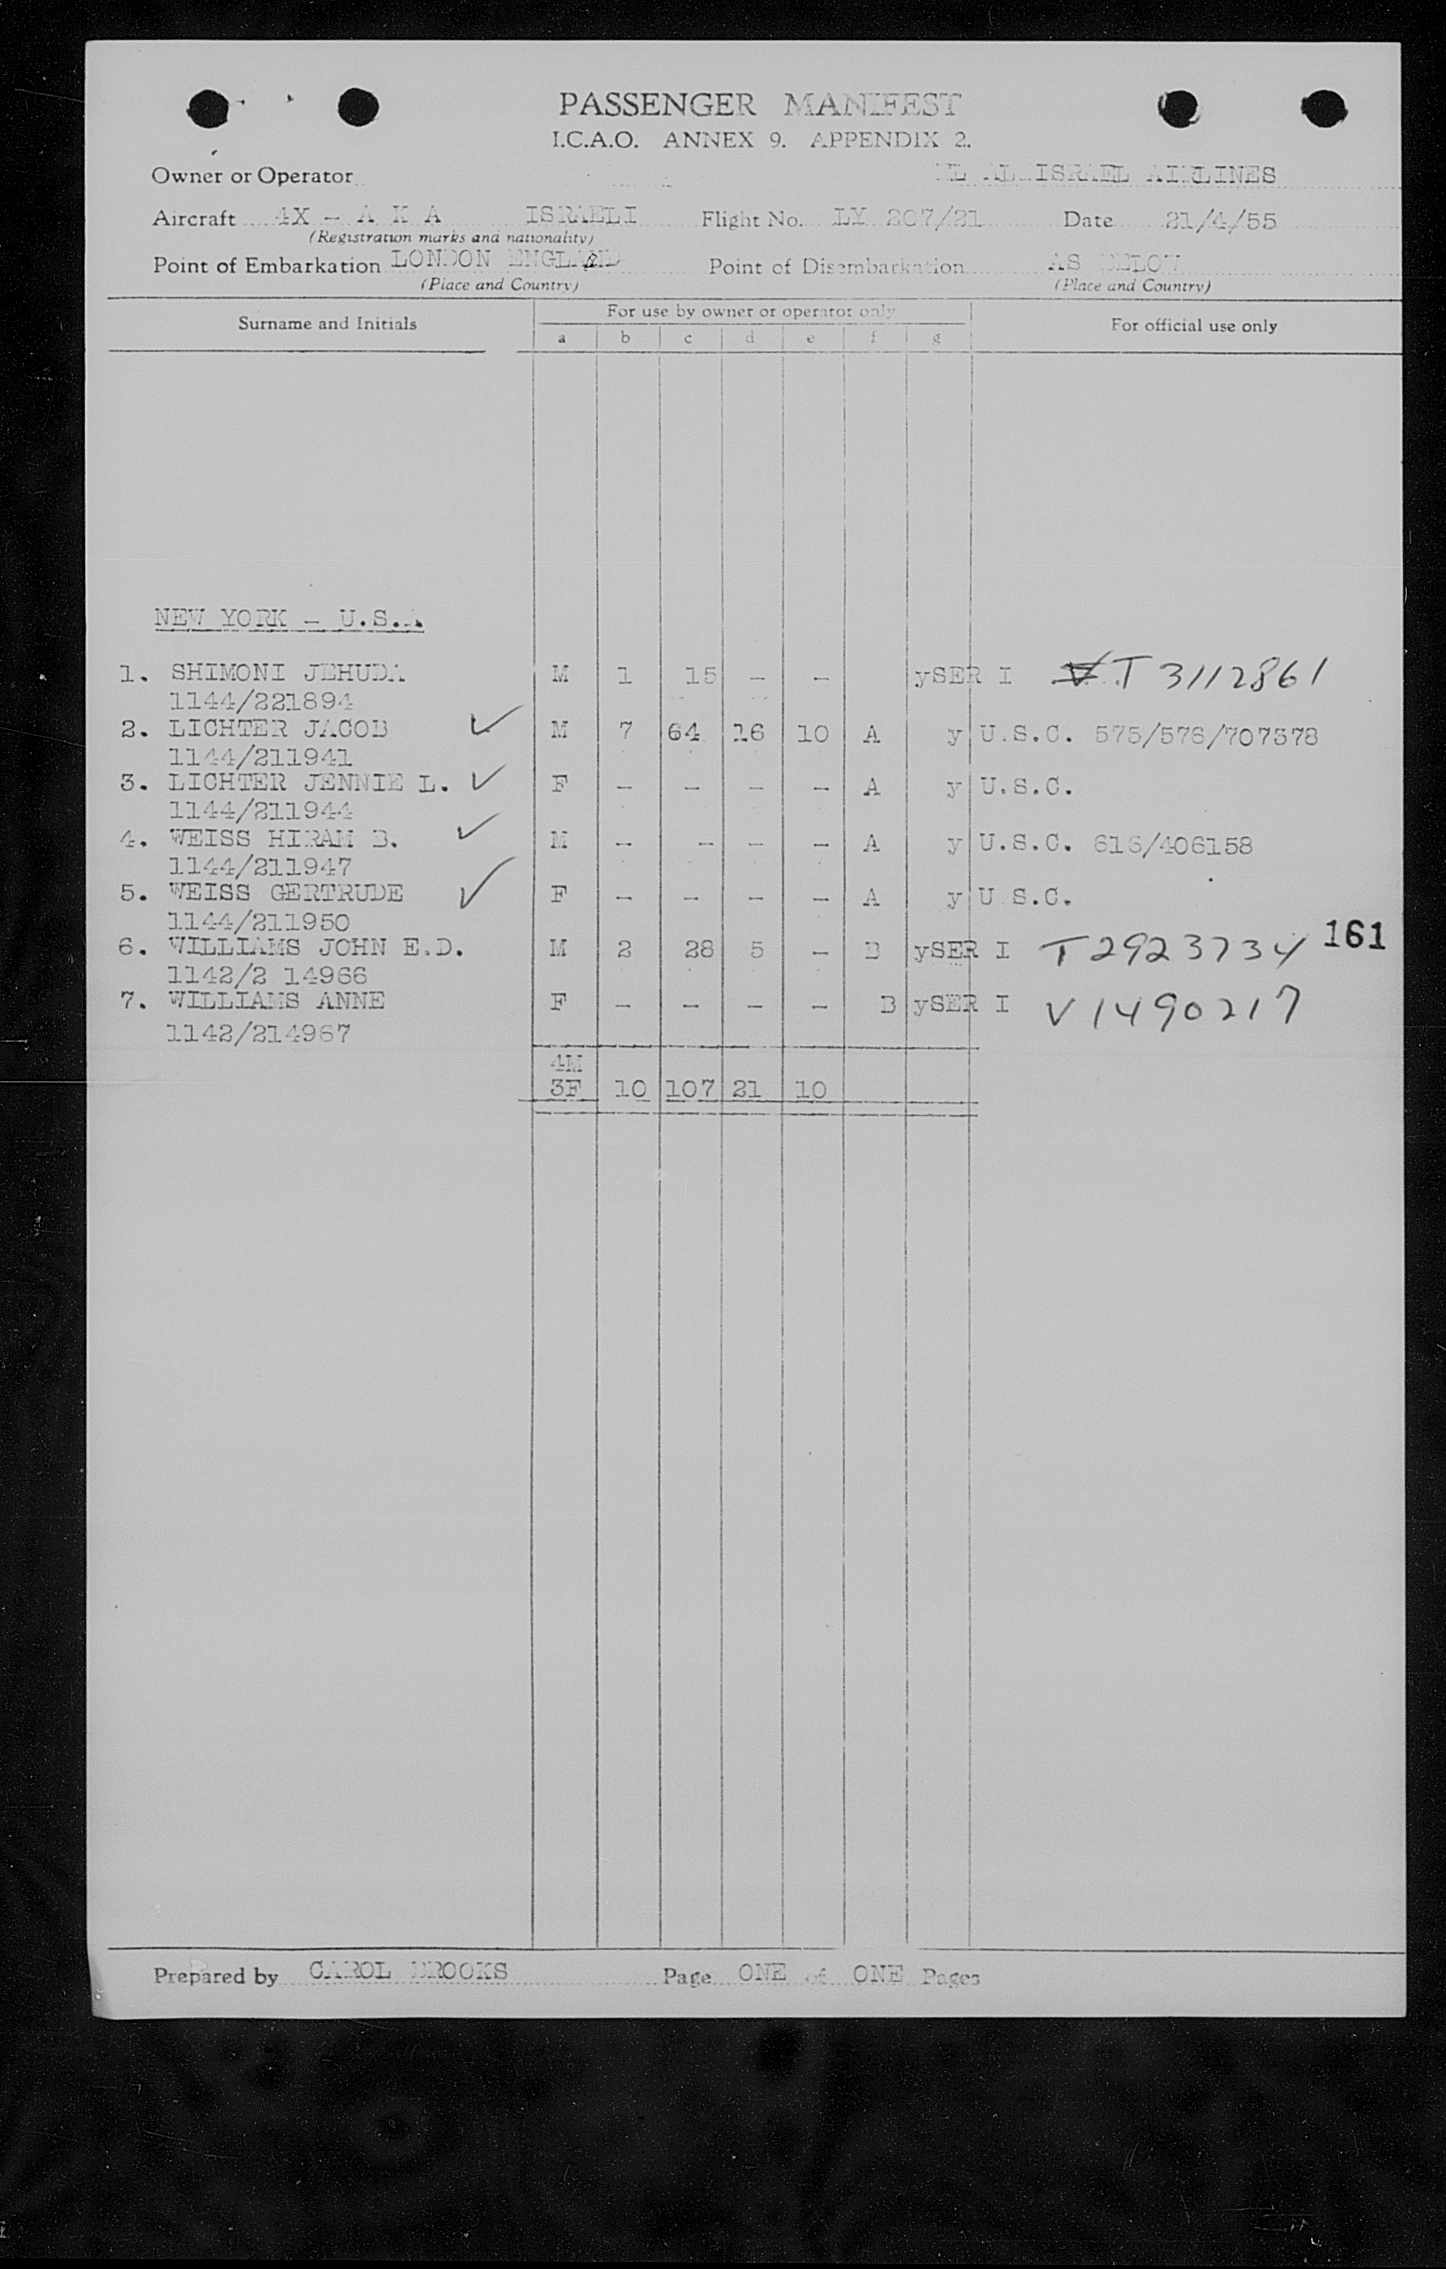 PASSENGER MANIFEST
I.C.A.O. ANNEX 9. APPENDIX 2.
Owner or Operator EL AL ISRAEL AIRLINES
Aircraft 4X - A K A ISRAELI Flight No. LY 207/21 Date 21/4/55
(Registration marks and nationality)
Point of Embarkation LONDON ENGLAND Point of Disembarkation AS BELOW
(Place and Country) (Place and Country)
Surname and Initials For use by owner or operator only For official use only
a b c d e f g
NEW YORK - U.S.A.
1. SHIMONI JEHUDA M 1 15 - - ySER I T 3112861
1144/221894
2. LICHTER JACOB ✓ M 7 64 16 10 A y U.S.C. 575/576/707578
1144/211941
3. LICHTER JENNIE L. ✓ F - - - - A y U.S.C.
1144/211944
4. WEISS HIRAM B. ✓ M - - - - A y U.S.C. 616/406158
1144/211947
5. WEISS GERTRUDE ✓ F - - - - A y U S.C.
1144/211950
6. WILLIAMS JOHN E.D. M 2 28 5 - B ySER I T2923734 161
1142/2 14966
7. WILLIAMS ANNE F - - - - B ySER I V1490217
1142/214967
4M
3F 10 107 21 10
Prepared by CAROL BROOKS Page ONE of ONE Pages